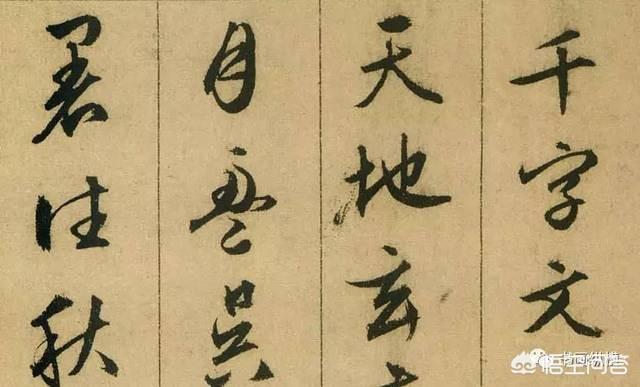 千字文
天地玄
月盈昃
暑往秋
悟空问答